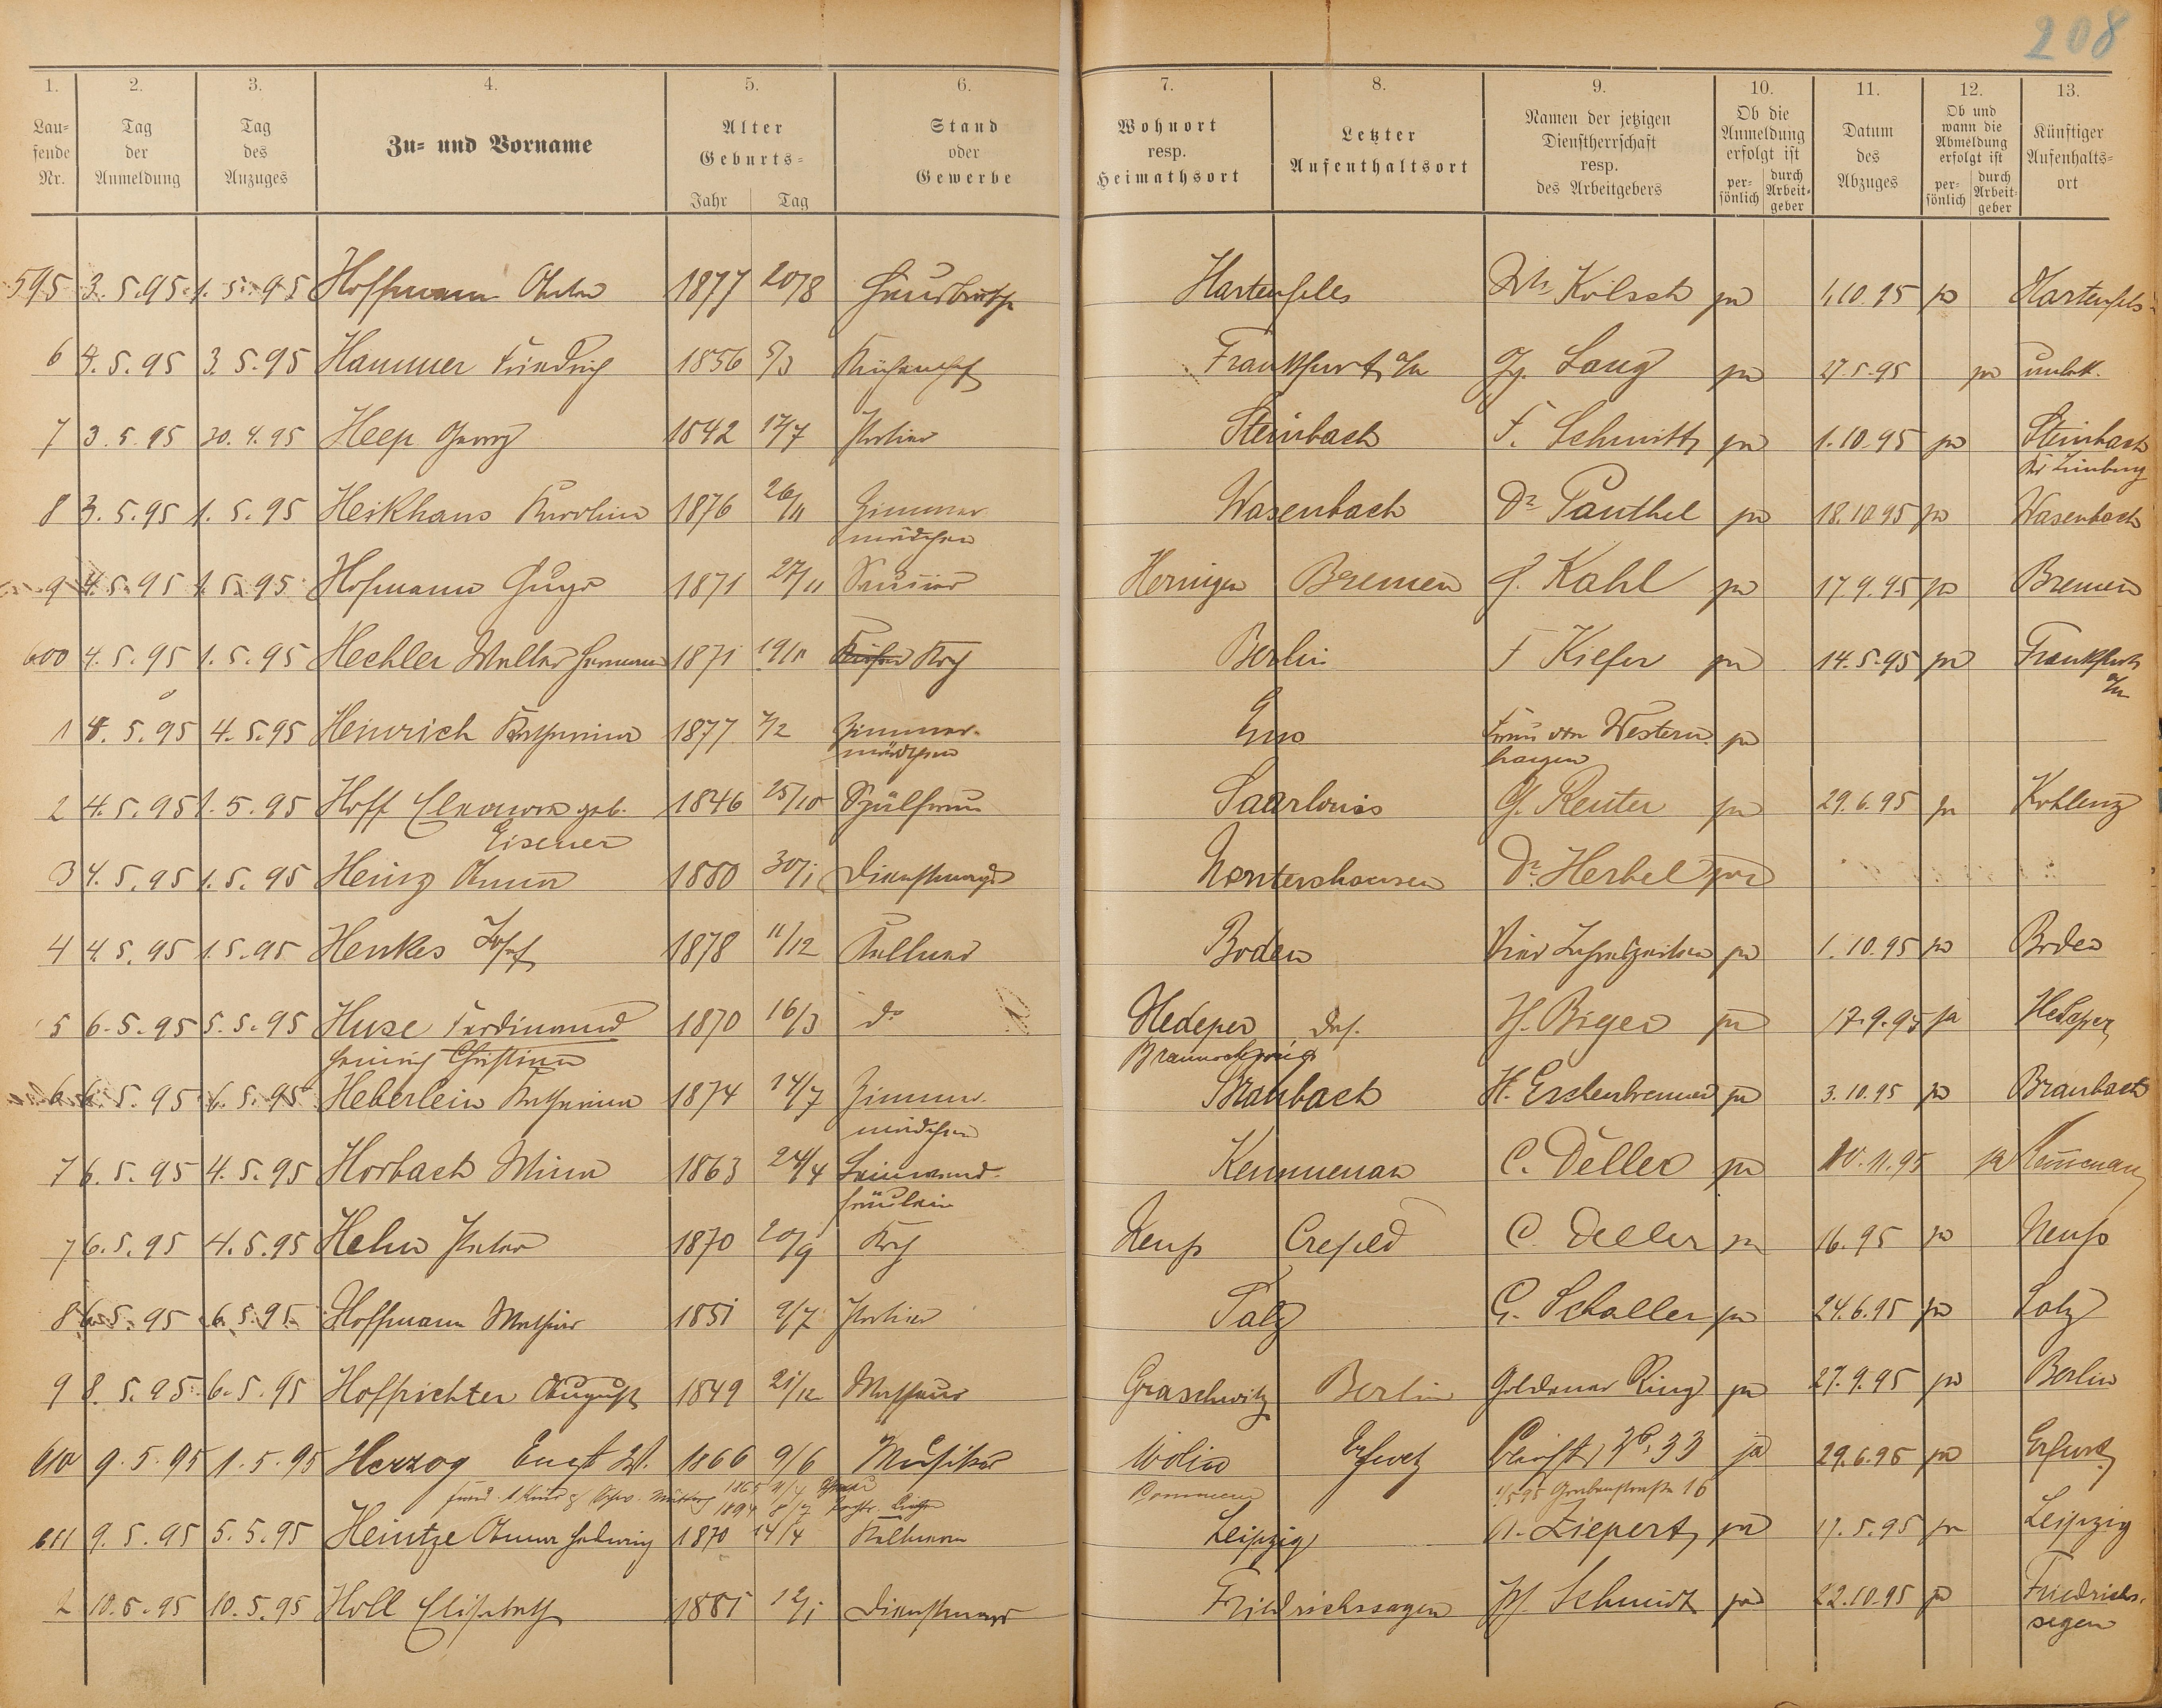 208
1. 2. 3. 4. 5. 6. 7. 8. 9. 10. 11. 12. 13.
Lau-
fende
Nr.
Tag
der
Anmeldung
Tag
des
Anzuges
Zu- und Vorname
Alter
Geburts-
Jahr Tag
Stand
oder
Gewerbe
Wohnort
resp.
Heimathsort
Letzter
Aufenthaltsort
Namen der jetzigen
Dienstherrschaft
resp.
des Arbeitgebers
Ob die
Anmeldung
erfolgt ist
per-
sönlich
durch
Arbeit-
geber
Datum
des
Abzuges
Ob und
wann die
Abmeldung
erfolgt ist
per-
sönlich
durch
Arbeit-
geber
Künftiger
Aufenthalts-
ort
595 3.5.95. 1.5.95 Hoffmann 1877 20/8 Hausbursche Hartenfels Kölsch ja 1.10.95 ja Hartenfels
6 4.5.95 3.5.95 Hammer Friedrich 1856 5/3 Küchenchef Frankfurt a/M Gg. Lang ja 27.5.95 ja unbek.
7 3.5.95 30.4.95 Heep Georg 1842 12/7 Portier Steinbach F. Schmitt ja 1.10.95 ja Steinbach
Limburg
8 3.5.95 1.5.95 Heikhaus Karoline 1876 26/11 Zimmer Wasenbach Dr Panthel ja 18.10.95 ja Wasenbach
mädchen
9 4.5.95 1.5.95 Hofmann Hugo 1871 27/11 Heringen Bremen J. Kahl ja 17.9.95 ja Bremen
600 4.5.95 1.5.95 Hechler Walter Hermann 1871 19/11 Koch Berlin F Kiefer ja 14.5.95 ja Frankfurt
a/M
1 4.5.95 4.5.95 Heinrich Katharina 1877 7/2 Zimmer- Ems Frau von Western- ja
mädchen hagen
2 4.5.95 1.5.95 Hoff Eleonora geb. 1846 25/10 Spülfrau Saarlouis G. Reuter ja 29.6.95 ja Koblenz
Eisener
3 4.5.95 1.5.95 Heinz Anna 1880 30/1 Dienstmagd Nentershausen Dr. Herbel ja
4 4.5.95 1.5.95 Henkes Josef 1878 11/12 Kellner Boden Vier Jahreszeiten ja 1.10.95 ja Boden
5 6.5.95 5.5.95 Huse Ferdinand 1870 16/3 do Hedeper das. H. Biger ja 17.9.95 ja Hedeper
Heinrich Christian Braunschweig
6 6.5.95 6.5.95 Heberlein Katharina 1874 14/7 Zimmer- Braubach H. Eschenbrenner ja 3.10.95 ja Braubach
mädchen
7 6.5.95 4.5.95 Horbach Mina 1863 24/4 Leinwand- Kemmenau C. Deller ja 10.11.95 ja Kemmenau
fräulein
7 6.5.95 4.5.95 Hehn Peter 1870 20/9 Koch Neuss Crefeld C. Deller ja 16.95 ja Neuss
8 6.5.95 6.5.95 Hoffmann Mathias 1851 9/7 Portier Salz G. Schaller ja 24.6.95 ja Salz
9 8.5.95 6.5.95 Hoffrichter August 1849 21/12 Masseur Graschwitz Berlin Goldener Ring ja 27.9.95 ja Berlin
610 9.5.95 1.5.95 Herzog Ernst W. 1866 9/6 Musiker Wolin Erfurt No. 33 ja 29.6.95 ja Erfurt
1865 4/4 Pommern 1/5 95 Grabenstraße 16
1894 8/7
611 9.5.95 5.5.95 Heintze Anna Hedwig 1870 14/4 Kellnerin Leipzig A. Ziepert ja 17.5.95 ja Leipzig
2 10.5.95 10.5.95 Holl Elisabeth 1881 12/1 Dienstmagd Friedrichssegen Schmidt ja 22.10.95 ja Friedrichs-
segen